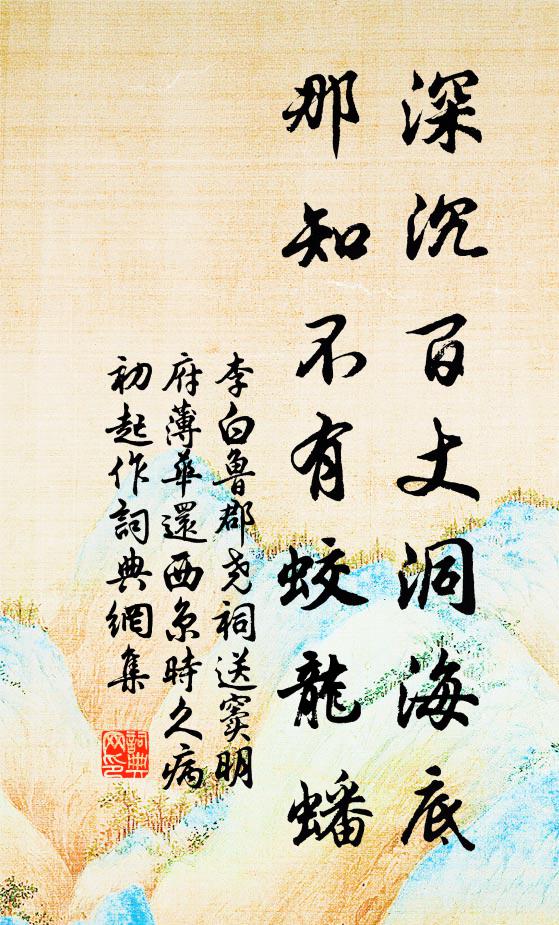 深沉百丈洞海底
那知不有蛟龍蟠
李白魯郡堯祠送竇明
府薄華還西京時久病
初起作詞典網集
詞典
网印